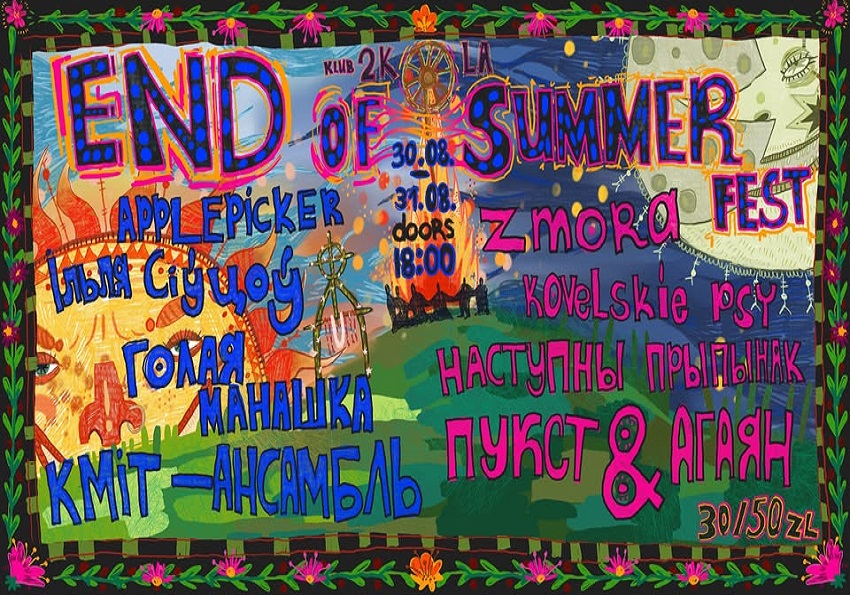 KLUB 2KOLA
END OF SUMMER
FEST
30.08.
–
31.08.
DOORS
18:00
APPLEPICKER
ІЛЬЛЯ СІЎЦОЎ
ГОЛАЯ
МАНАШКА
КМІТ–АНСАМБЛЬ
ZMORA
KOVELSKIE PSY
НАСТУПНЫ ПРЫПЫНАК
ПУКСТ & АГАЯН
30/50 ZL